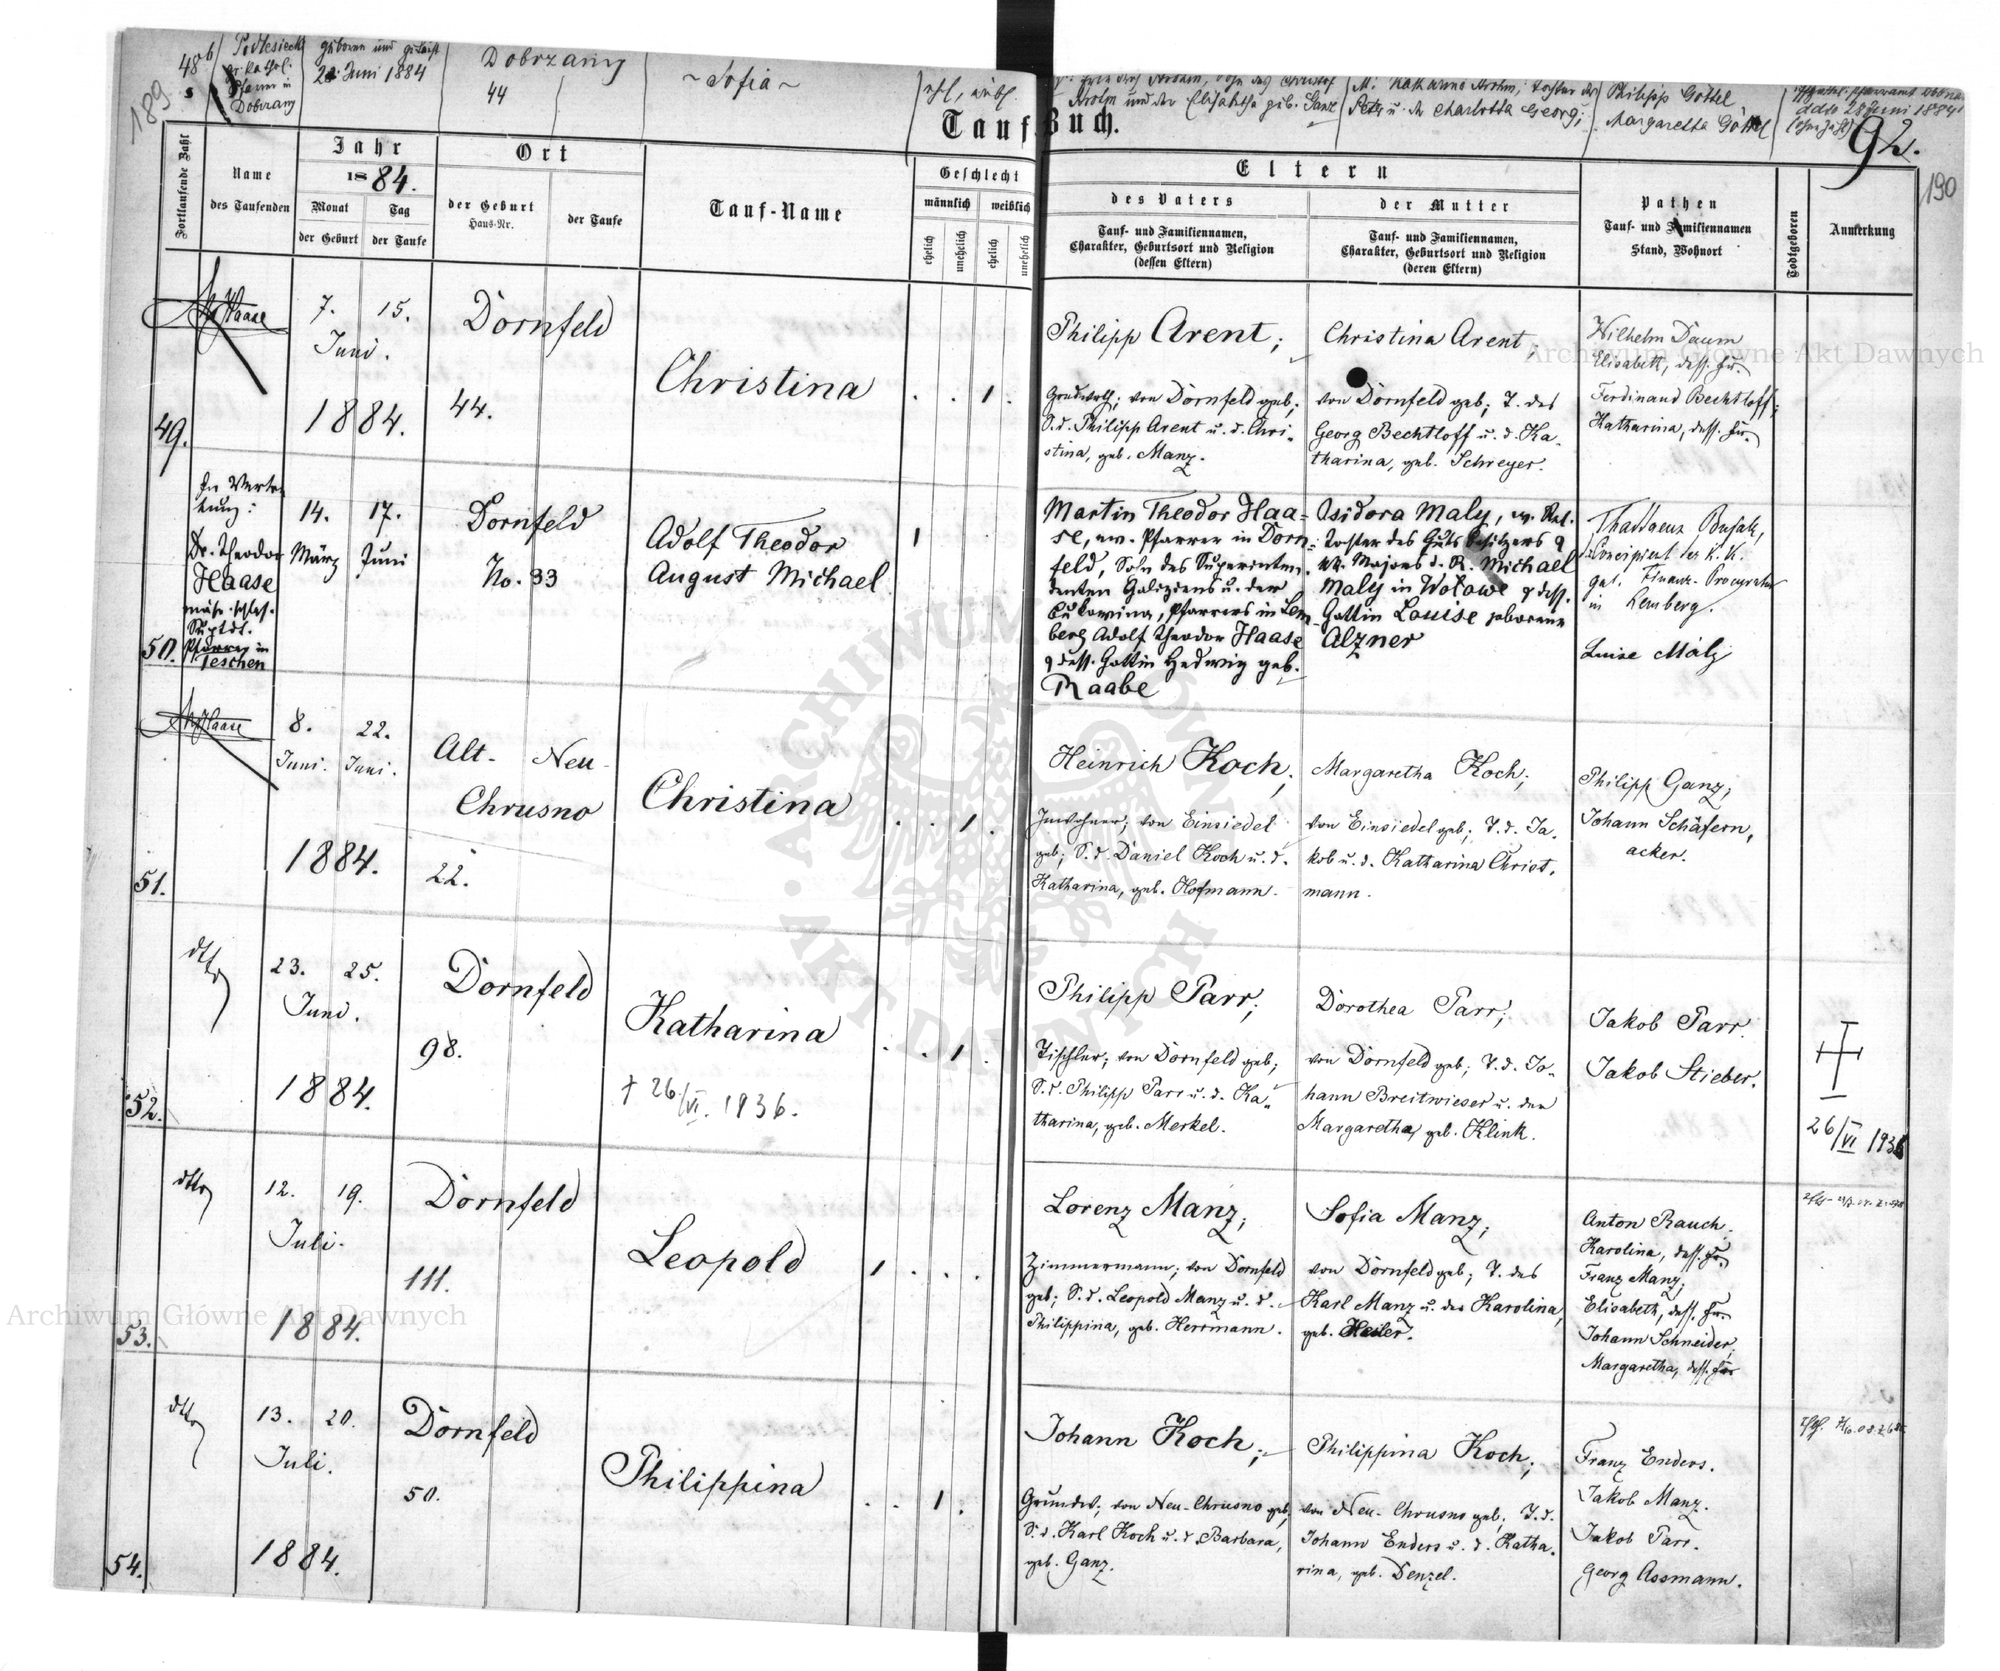 189
48b
Podlesiecki
gr. kathol.
Pfarrer in
Dobrzany
geboren und getauft
Juni 1884
Dobrzany
44
~ Sofia ~
ehl., weibl.
und der Elisabetha geb. Ganz
Peter u. der Charlotta Georg;
Philipp Göttel
Margaretha Göttel
ddto 28 Juni 1884
92.
190
Tauf-Buch.
Fortlaufende Zahl
Name
des Taufenden
Jahr
1884.
Monat
Tag
der Geburt
der Taufe
Ort
der Geburt
Haus-Nr.
der Taufe
Tauf-Name
Geschlecht
männlich
weiblich
ehelich
unehelich
ehelich
unehelich
Eltern
des Vaters
Tauf- und Familiennamen,
Charakter, Geburtsort und Religion
(dessen Eltern)
der Mutter
Tauf- und Familiennamen,
Charakter, Geburtsort und Religion
(deren Eltern)
Pathen
Tauf- und Familiennamen
Stand, Wohnort
Todtgeboren
Anmerkung
49.
Haase
7. 15.
Juni.
1884.
Dornfeld
44.
Christina
. . 1 .
Philipp Arent;
Grundwrth; von Dornfeld geb;
S. d. Philipp Arent u. d. Chri-
stina, geb. Manz.
Christina Arent;
von Dornfeld geb; T. des
Georg Bechtloff u. d. Ka-
tharina, geb. Schreyer.
Wilhelm Daum
Elisabeth, dess. Fr.
Ferdinand Bechtloff;
Katharina, dess. Fr.
50.
In Vertre-
tung:
Dr. Theodor
Haase
mähr. schles.
Suptdt.
Pfarrer in
Teschen
14. 17.
März Juni
Dornfeld
No. 33
Adolf Theodor
August Michael
1
Martin Theodor Haa-
se, ev. Pfarrer in Dorn-
feld, Sohn des Superinten-
denten Galiziens u. der
Bukowina, Pfarrers in Lem-
berg Adolf Theodor Haase
& dess. Gattin Hedwig geb.
Raabe
Isidora Maly, ev. Rel.
Tochter des Gutsbesitzers &
Majors d. R. Michael
Maly in Wolowe & dess.
Gattin Louise geborene
Alzner
Concipient der K. K.
gal. Finanz-Procuratur
in Lemberg.
Luise Maly
51.
Haase
8. 22.
Juni. Juni.
1884.
Alt- Neu-
Chrusno
22.
Christina
. . 1 .
Heinrich Koch;
Inwohner; von Einsiedel
geb; S. d. Daniel Koch u. d.
Katharina, geb. Hofmann.
Margaretha Koch;
von Einsiedel geb; T. d. Ja-
kob u. d. Katharina Christ-
mann.
Philipp Ganz;
Johann Schäfern,
acker.
52.
dtto
23. 25.
Juni.
1884.
Dornfeld
98.
Katharina
† 26/VI. 1936.
. . 1 .
Philipp Parr;
Tischler; von Dornfeld geb;
S. d. Philipp Parr u. d. Ka-
tharina, geb. Merkel.
Dorothea Parr;
von Dornfeld geb; T. d. Jo-
hann Breitwieser u. der
Margaretha, geb. Klink.
Jakob Parr.
Jakob Stieber.
26/VI 1936
53.
dtto
12. 19.
Juli.
1884.
Dornfeld
111.
Leopold
1 . . .
Lorenz Manz;
Zimmermann; von Dornfeld
geb; S. d. Leopold Manz u. d.
Philippina, geb. Herrmann.
Sofia Manz;
von Dornfeld geb; T. des
Karl Manz u. der Karolina,
geb. Heiler.
Anton Rauch;
Karolina, dess. Fr.
Franz Manz;
Elisabeth, dess. Fr.
Johann Schneider;
Margaretha, dess. Fr.
54.
dtto
13. 20.
Juli.
1884.
Dornfeld
50.
Philippina
. . 1 .
Johann Koch;
Grundw; von Neu-Chrusno geb;
S. d. Karl Koch u. d. Barbara,
geb. Ganz.
Philippina Koch;
von Neu-Chrusno geb; T. d.
Johann Enders u. d. Katha-
rina, geb. Denzel.
Franz Enders.
Jakob Manz.
Jakob Parr.
Georg Assmann.
Archiwum Główne Akt Dawnych
Archiwum Główne Akt Dawnych
ARCHIWUM GŁÓWNE AKT DAWNYCH